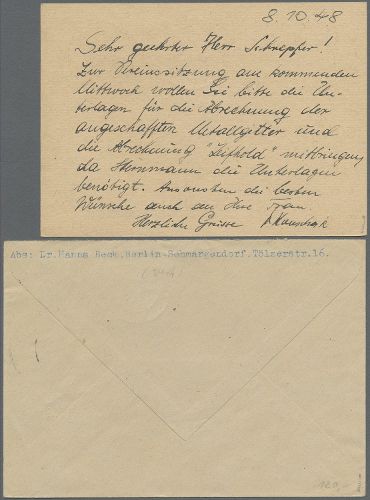 8.10.48
Sehr geehrter Herr Schrepfer!
Zur Vereinssitzung am kommenden
Mittwoch wollen Sie bitte die Un-
terlagen für die Abrechnung der
angeschafften Metallgitter und
die Abrechnung "Leithold" mitbringen,
da Herrmann die Unterlagen
benötigt. Ansonsten die besten
Wünsche auch an Ihre Frau.
Herzliche Grüsse
Abs: Dr. Hanna Beck, Berlin-Schmargendorf, Tölzerstr.16.
120,-